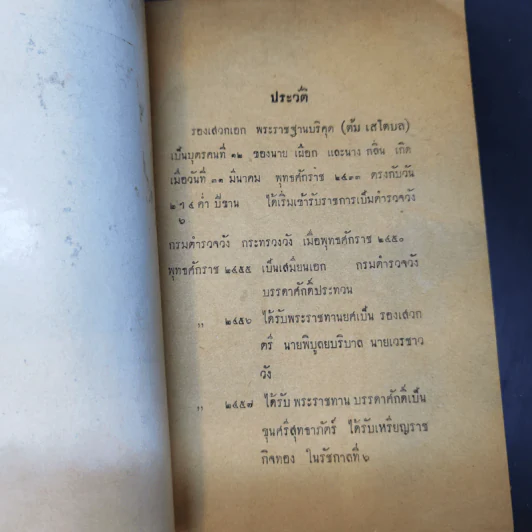 ประวัติ
รองเสวกเอก พระราชฐานบริคุต (ต้ม เสโตบล)
เป็นบุตรคนที่ ๑๒ ของนาย เผือก และนาง กลิ่น เกิด
เมื่อวันที่ ๓๑ มีนาคม พุทธศักราช ๒๔๓๓ ตรงกับวัน
๒ ฯ ๔ ค่ำ ปีขาน ได้เริ่มเข้ารับราชการเป็นตำรวจวัง
๖
กรมตำรวจวัง กระทรวงวัง เมื่อพุทธศักราช ๒๔๕๐
พุทธศักราช ๒๔๕๕ เป็นเสมียนเอก กรมตำรวจวัง
บรรดาศักดิ์ประทวน
,, ๒๔๕๖ ได้รับพระราชทานยศเป็น รองเสวก
ตรี นายพิบูลยบริบาล นายเวรชาว
วัง
,, ๒๔๕๗ ได้รับ พระราชทาน บรรดาศักดิ์เป็น
ขุนศรีสุทธาภัตร์ ได้รับเหรียญราช
กิจทอง ในรัชกาลที่ ๖